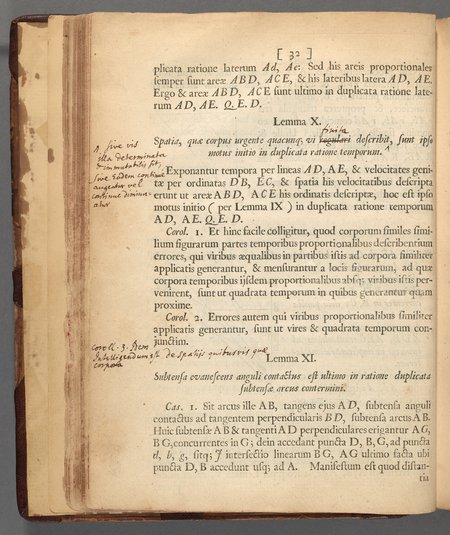 [ 32 ]
plicata ratione laterum Ad, Ae: Sed his areis proportionales
semper sunt areæ ABD, ACE, & his lateribus latera AD, AE.
Ergo & areæ ABD, ACE sunt ultimo in duplicata ratione late-
rum AD, AE. Q. E. D.
Lemma X.
finita
Spatia, quæ corpus urgente quacunq; vi regulari describit, sunt ipso
motus initio in duplicata ratione temporum.
sive vis
illa Determinata
& immutabilis sit,
sive Eadem continuo
augeatur vel
continuo diminu-
atur
Exponantur tempora per lineas AD, AE, & velocitates geni-
tæ per ordinatas DB, EC, & spatia his velocitatibus descripta
erunt ut areæ ABD, ACE his ordinatis descriptæ, hoc est ipso
motus initio (per Lemma IX) in duplicata ratione temporum
AD, AE. Q. E. D.
Corol. 1. Et hinc facile colligitur, quod corporum similes simi-
lium figurarum partes temporibus proportionalibus describentium
errores, qui viribus æqualibus in partibus istis ad corpora similiter
applicatis generantur, & mensurantur a locis figurarum, ad quæ
corpora temporibus ijsdem proportionalibus absq; viribus istis per-
venirent, sunt ut quadrata temporum in quibus generantur quam
proxime.
Corol. 2. Errores autem qui viribus proportionalibus similiter
applicatis generantur, sunt ut vires & quadrata temporum con-
junctim.
Coroll. 3. Idem
Intelligendum est de spatijs quibusvis quæ
corpora
Lemma XI.
Subtensa evanescens anguli contactus est ultimo in ratione duplicata
subtensæ arcus contermini.
Cas. 1. Sit arcus ille AB, tangens ejus AD, subtensa anguli
contactus ad tangentem perpendicularis BD, subtensa arcus AB.
Huic subtensæ AB & tangenti AD perpendiculares erigantur AG,
BG, concurrentes in G; dein accedant puncta D, B, G, ad puncta
d, b, g, sitq; J intersectio linearum BG, AG ultimo facta ubi
puncta D, B accedunt usq; ad A. Manifestum est quod distan-
tia